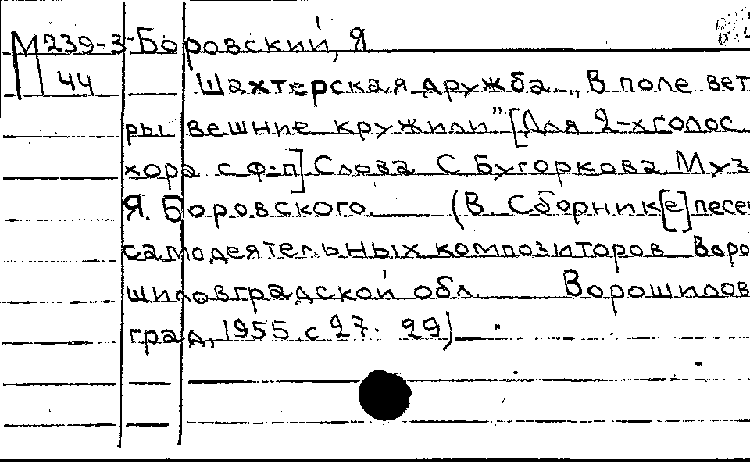 М 239-3 Боровский, Я
44 Шахтерская дружба. „В поле вет
ры вешние кружили" [Для 2-хголос
хора с ф-п] Слова С. Бугоркова Муз
Я. Боровского. (В Сборник[е] песен
самодеятельных композиторов Воро
шиловградской обл. Ворошилов
град, 1955 с 27-29)